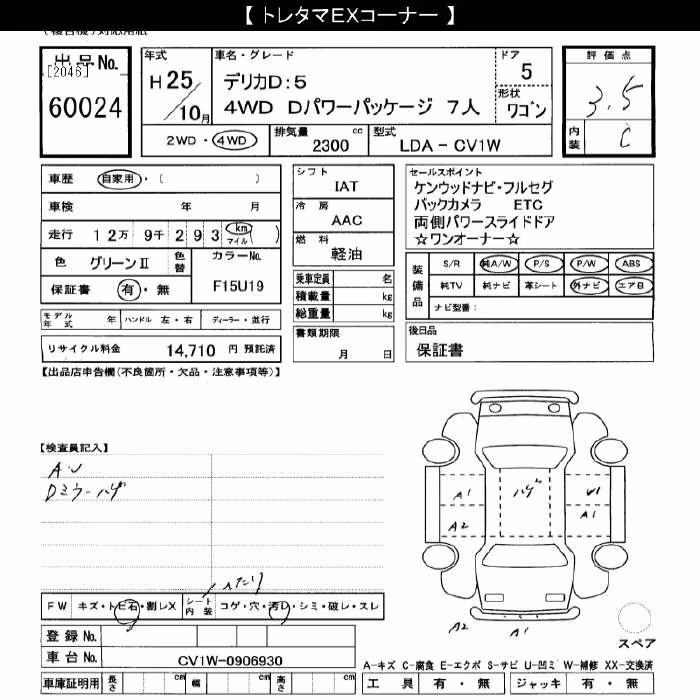 【 トレタマEXコーナー 】
出品No.
[2046]
60024
年式
H 25/10月
車名・グレード
デリカD:5
4WD Dパワーパッケージ 7人
ドア
5
形状
ワゴン
評価点
3.5
内装
C
2WD・4WD
排気量 2300 cc
型式 LDA-CV1W
車歴 自家用・( )
車検 年 月
走行 12万9千293 km マイル ( )
色 グリーンⅡ
色替
カラーNo.
F15U19
保証書 有・無
モデル年式 年
ハンドル 左・右
ディーラー・並行
リサイクル料金 14,710 円 預託済
シフト
IAT
冷房
AAC
燃料
軽油
乗車定員 名
積載量 kg
総重量 kg
書類期限
月 日
セールスポイント
ケンウッドナビ・フルセグ
バックカメラ ETC
両側パワースライドドア
☆ワンオーナー☆
装備品
S/R 純A/W P/S P/W ABS
純TV 純ナビ 革シート 外ナビ エアB
ナビ型番:
後日品
保証書
【出品店申告欄(不良箇所・欠品・注意事項等)】
【検査員記入】
Dミラーハゲ
A1
A2
ハゲ
A1
A2
A1
FW キズ・トビ石・割レX
シート内装 コゲ・穴・汚レ・シミ・破レ・スレ
登録No.
車台No. CV1W-0906930
車庫証明用 長さ cm 幅 cm 高さ cm
スペア
A-キズ C-腐食 E-エクボ S-サビ U-凹ミ W-補修 XX-交換済
工具 有・無 ジャッキ 有・無